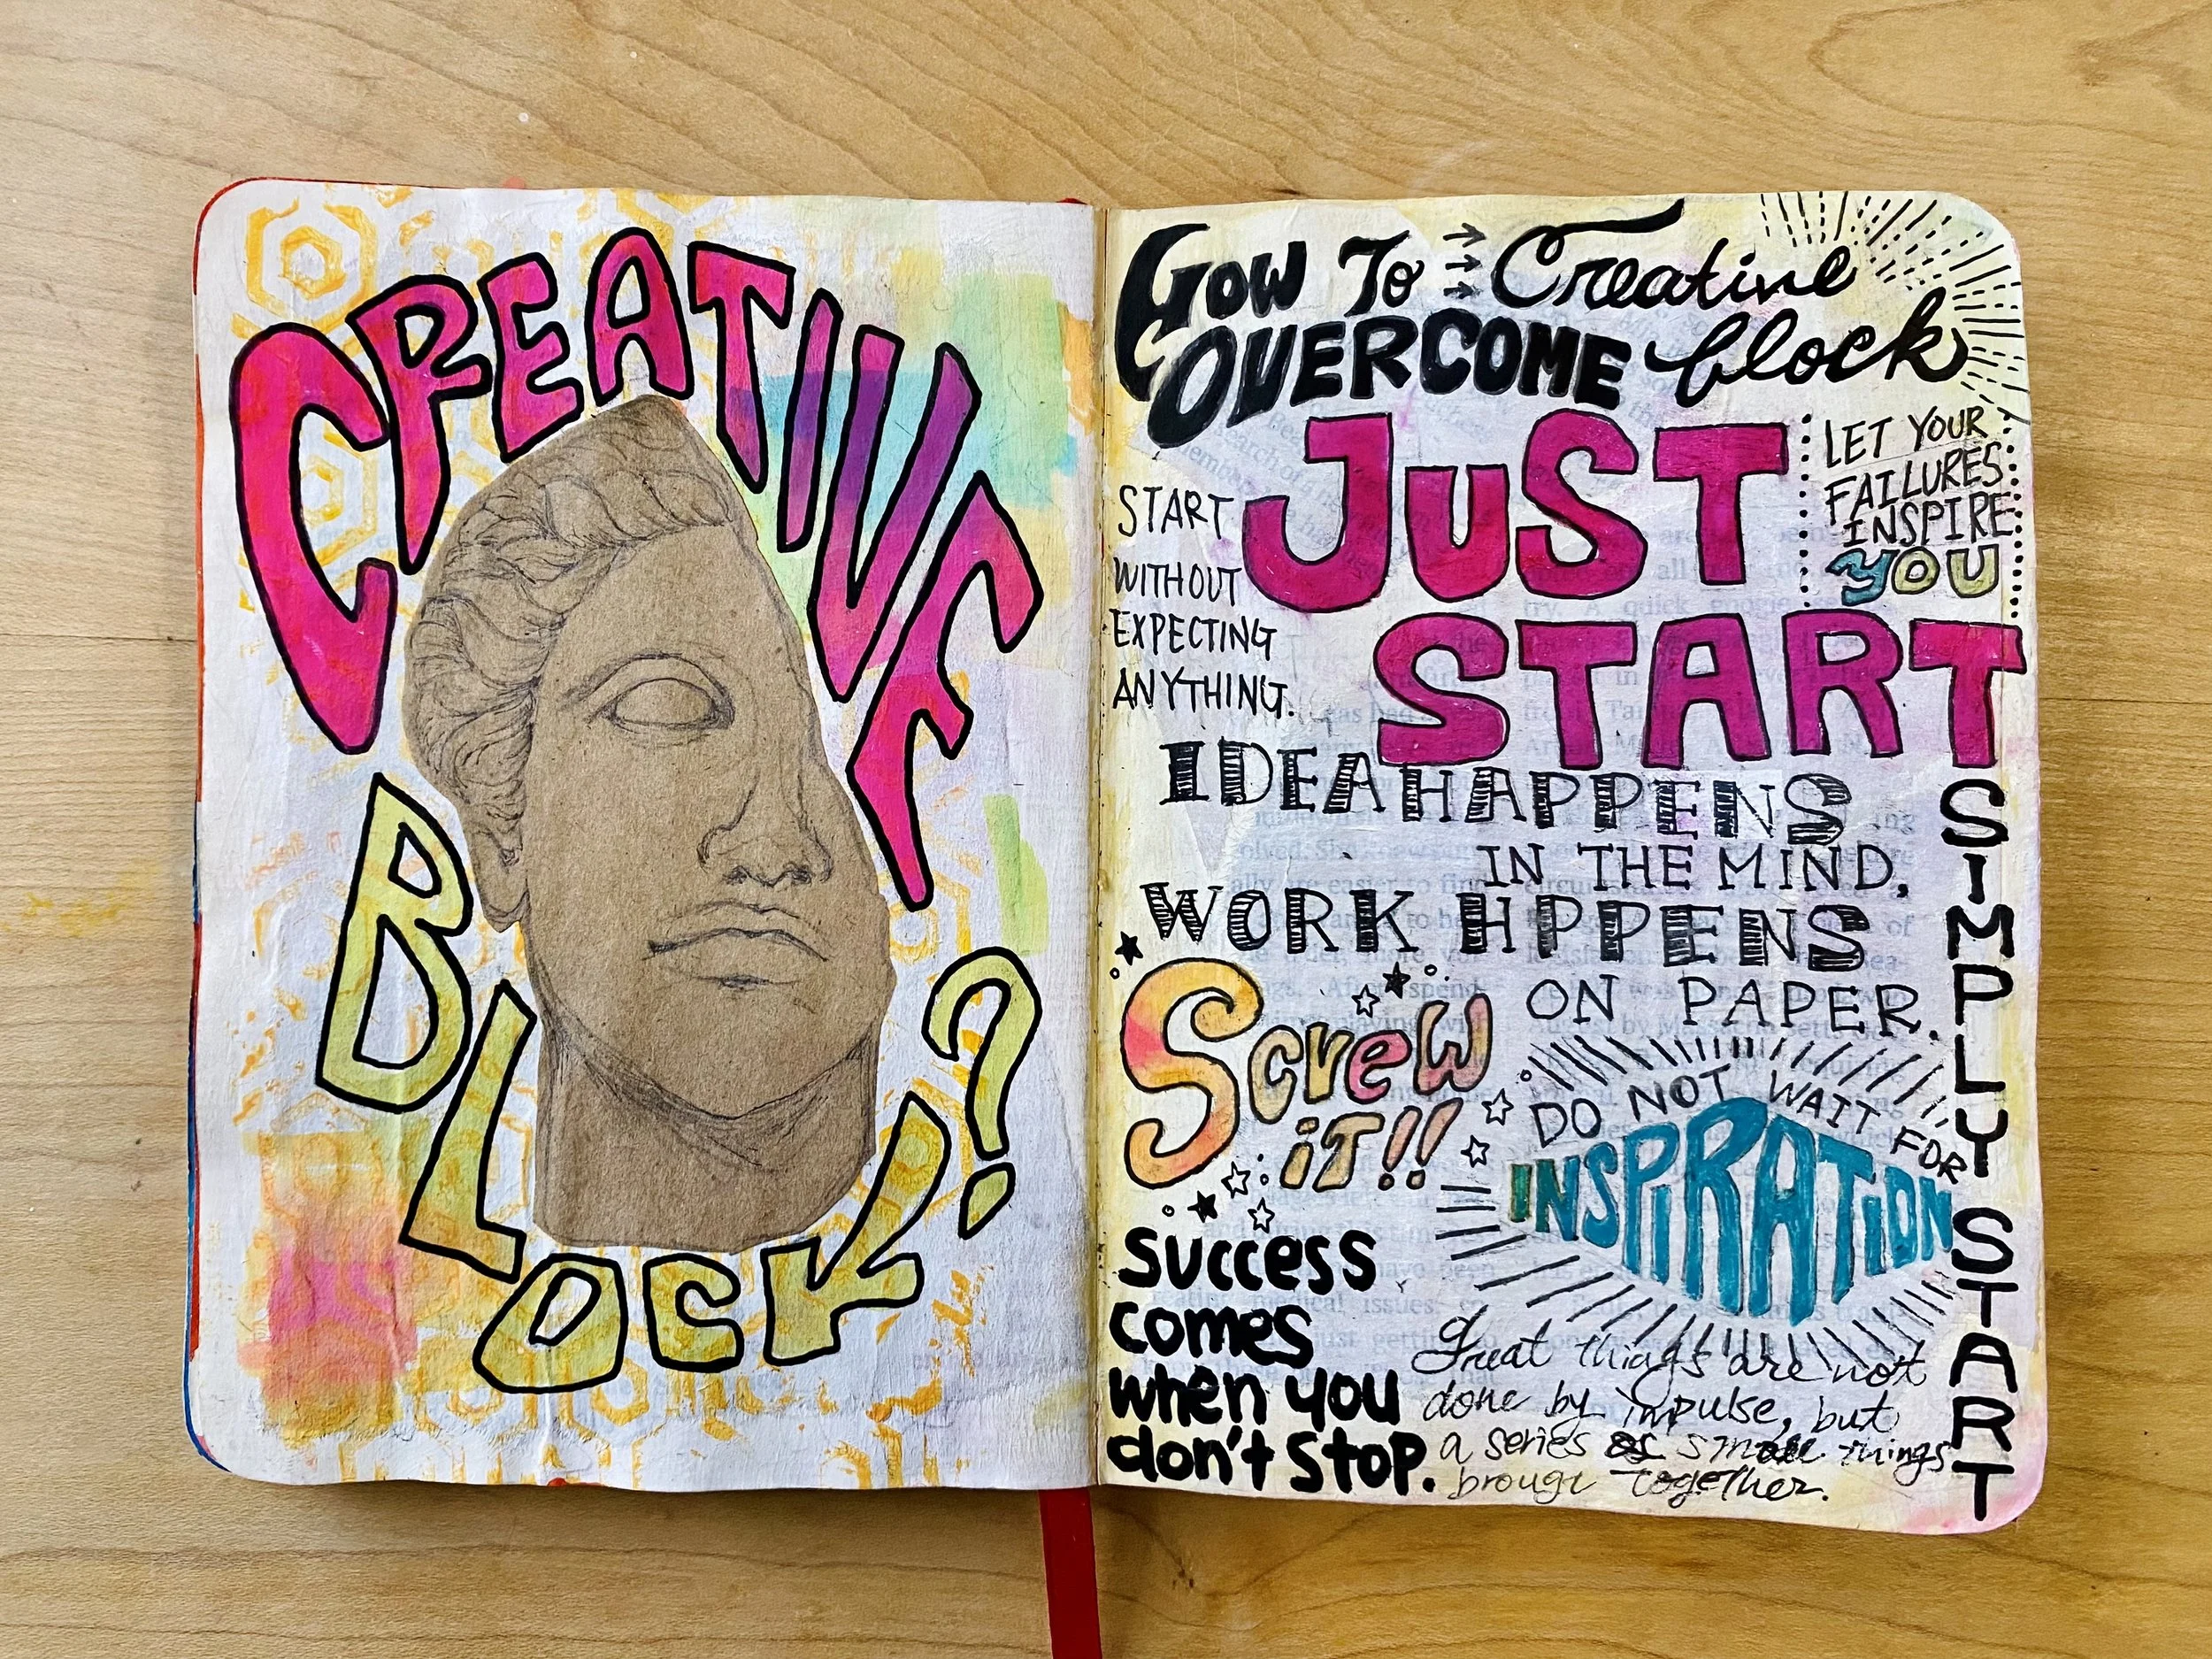 CREATIVE
BLOCK?
HOW TO Creative
OVERCOME block
JUST
START
LET YOUR
FAILURES
INSPIRE
YOU
START
WITHOUT
EXPECTING
ANYTHING.
IDEA HAPPENS
IN THE MIND,
WORK HPPENS
ON PAPER.
SIMPLY START
Screw
iT!!
DO NOT WAIT FOR
INSPIRATION
success
comes
when you
don't stop.
Great things are not
done by impulse, but
a series of small things
brougt together.